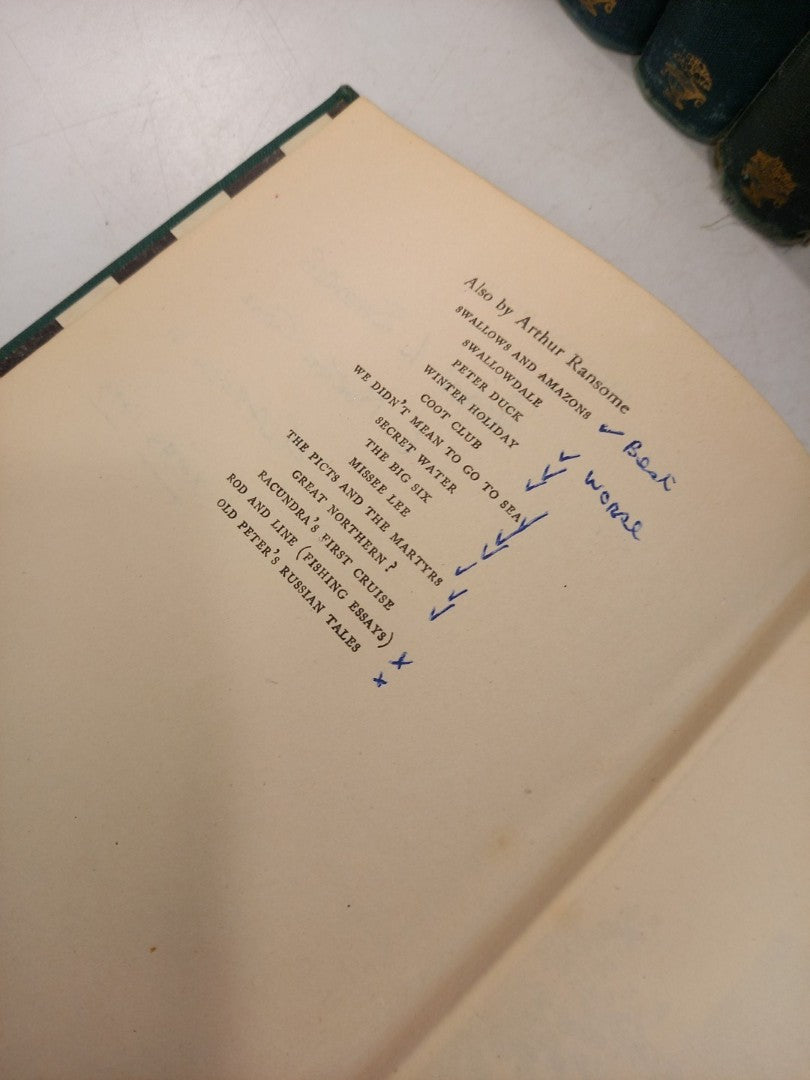 Also by Arthur Ransome
SWALLOWS AND AMAZONS Best
SWALLOWDALE
PETER DUCK Worse
WINTER HOLIDAY
COOT CLUB
WE DIDN'T MEAN TO GO TO SEA
SECRET WATER
THE BIG SIX
MISSEE LEE
THE PICTS AND THE MARTYRS
GREAT NORTHERN?
RACUNDRA'S FIRST CRUISE
ROD AND LINE (FISHING ESSAYS)
OLD PETER'S RUSSIAN TALES